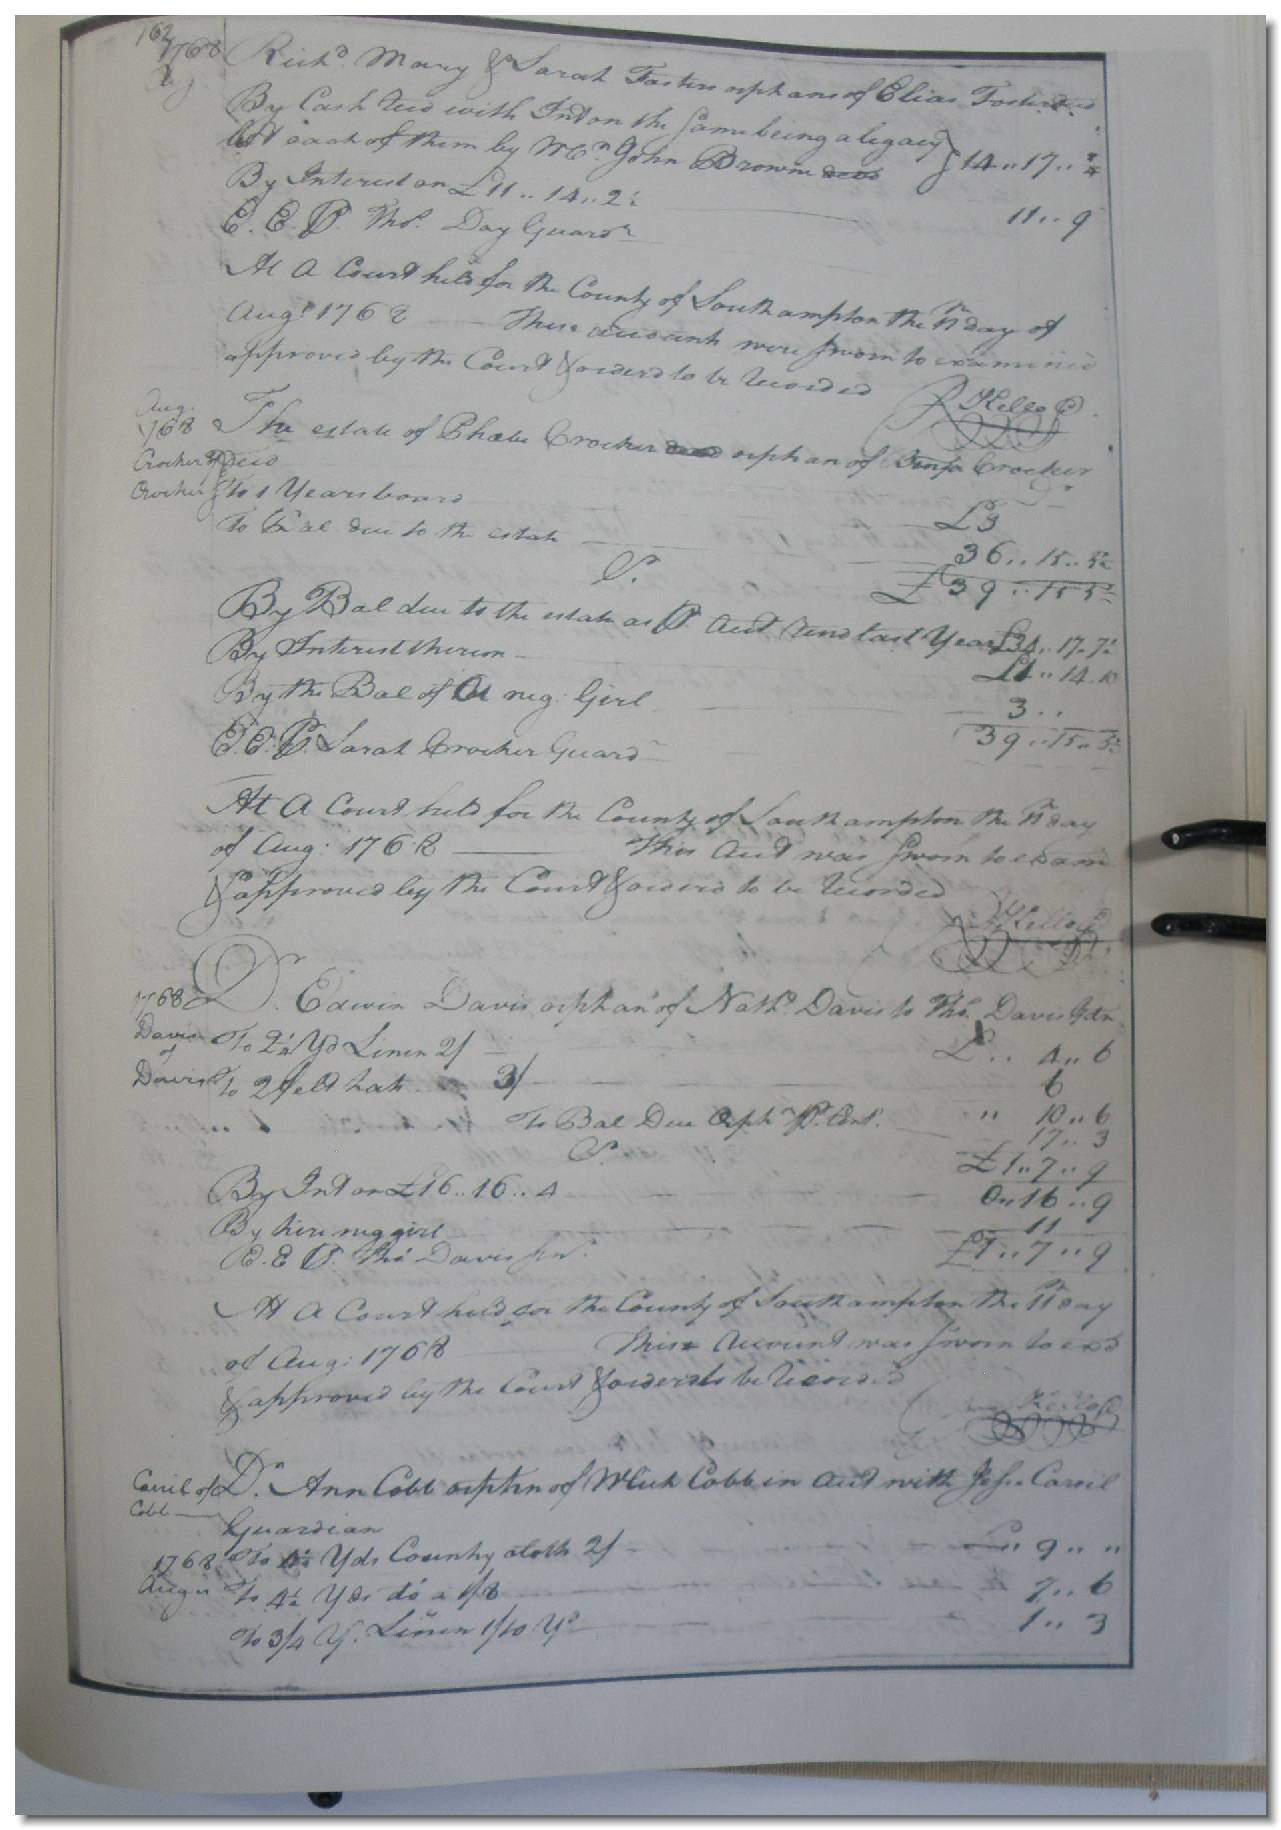 162
1768
Aug
Richd. Mary & Sarah Fosters orphans of Elias Foster decd
By Cash recd with Int on the same being a legacy
left each of them by Wm John Brown decd 14 .. 17 ..
By Interest on £11 .. 14 .. 2½ 11 .. 9
E. E. P. Thos. Day Guardn
At A Court held for the County of Southampton the 11th day of
Augt 1768 These accounts were sworn to examined
approved by the Court & orderd to be recorded
R Kello C
Aug. 1768
Crocker of
Crocker
The estate of Phebe Crocker orphan of Crocker
decd
To 1 Years board £3
To Bal due to the estate 36 .. 15 .. 5½
£39 .. 15 5½
By Bal due to the estate as P Acct rend last Year £34 .. 17 .. 7½
By Interest thereon £1 .. 14 .. 10
By the Bal of A neg. Girl 3 ..
E. E. P. Sarah Crocker Guardn 39 .. 15 .. 5½
At A Court held for the County of Southampton the 11th day
of Aug: 1768 This Acct was sworn to exam
& approved by the Court & orderd to be recorded
R Kello C
1768
Davis
of
Davis
Dr. Edwin Davis orphan of Nathl Davis to Thos. Davis Gdn
To 2¼ Yd Linen 2/ £ .. 4 .. 6
To 2 felt hats 3/ 6
" 10 .. 6
To Bal Due Orphn P. Cont. 17 .. 3
£1 .. 7 .. 9
By Int on £16 .. 16 .. 4 0 .. 16 .. 9
By hire neg girl 11
E. E P. Thos Davis £1 .. 7 .. 9
At A Court held for the County of Southampton the 11th day
of Aug: 1768 This Account was sworn to exd
& approved by the Court & orderd to be recorded
R Kello C
Carril of
Cobb
Dr. Ann Cobb orphn of Mich Cobb in Acct with Jesse Carril
Guardian
1768
Aug 11
To 4½ Yds Country cloth 2/ £ " 9 .. "
To 4½ Yds do a 1/8 7 .. 6
To 3/4 Y. Linen 1/10 Yd 1 .. 3